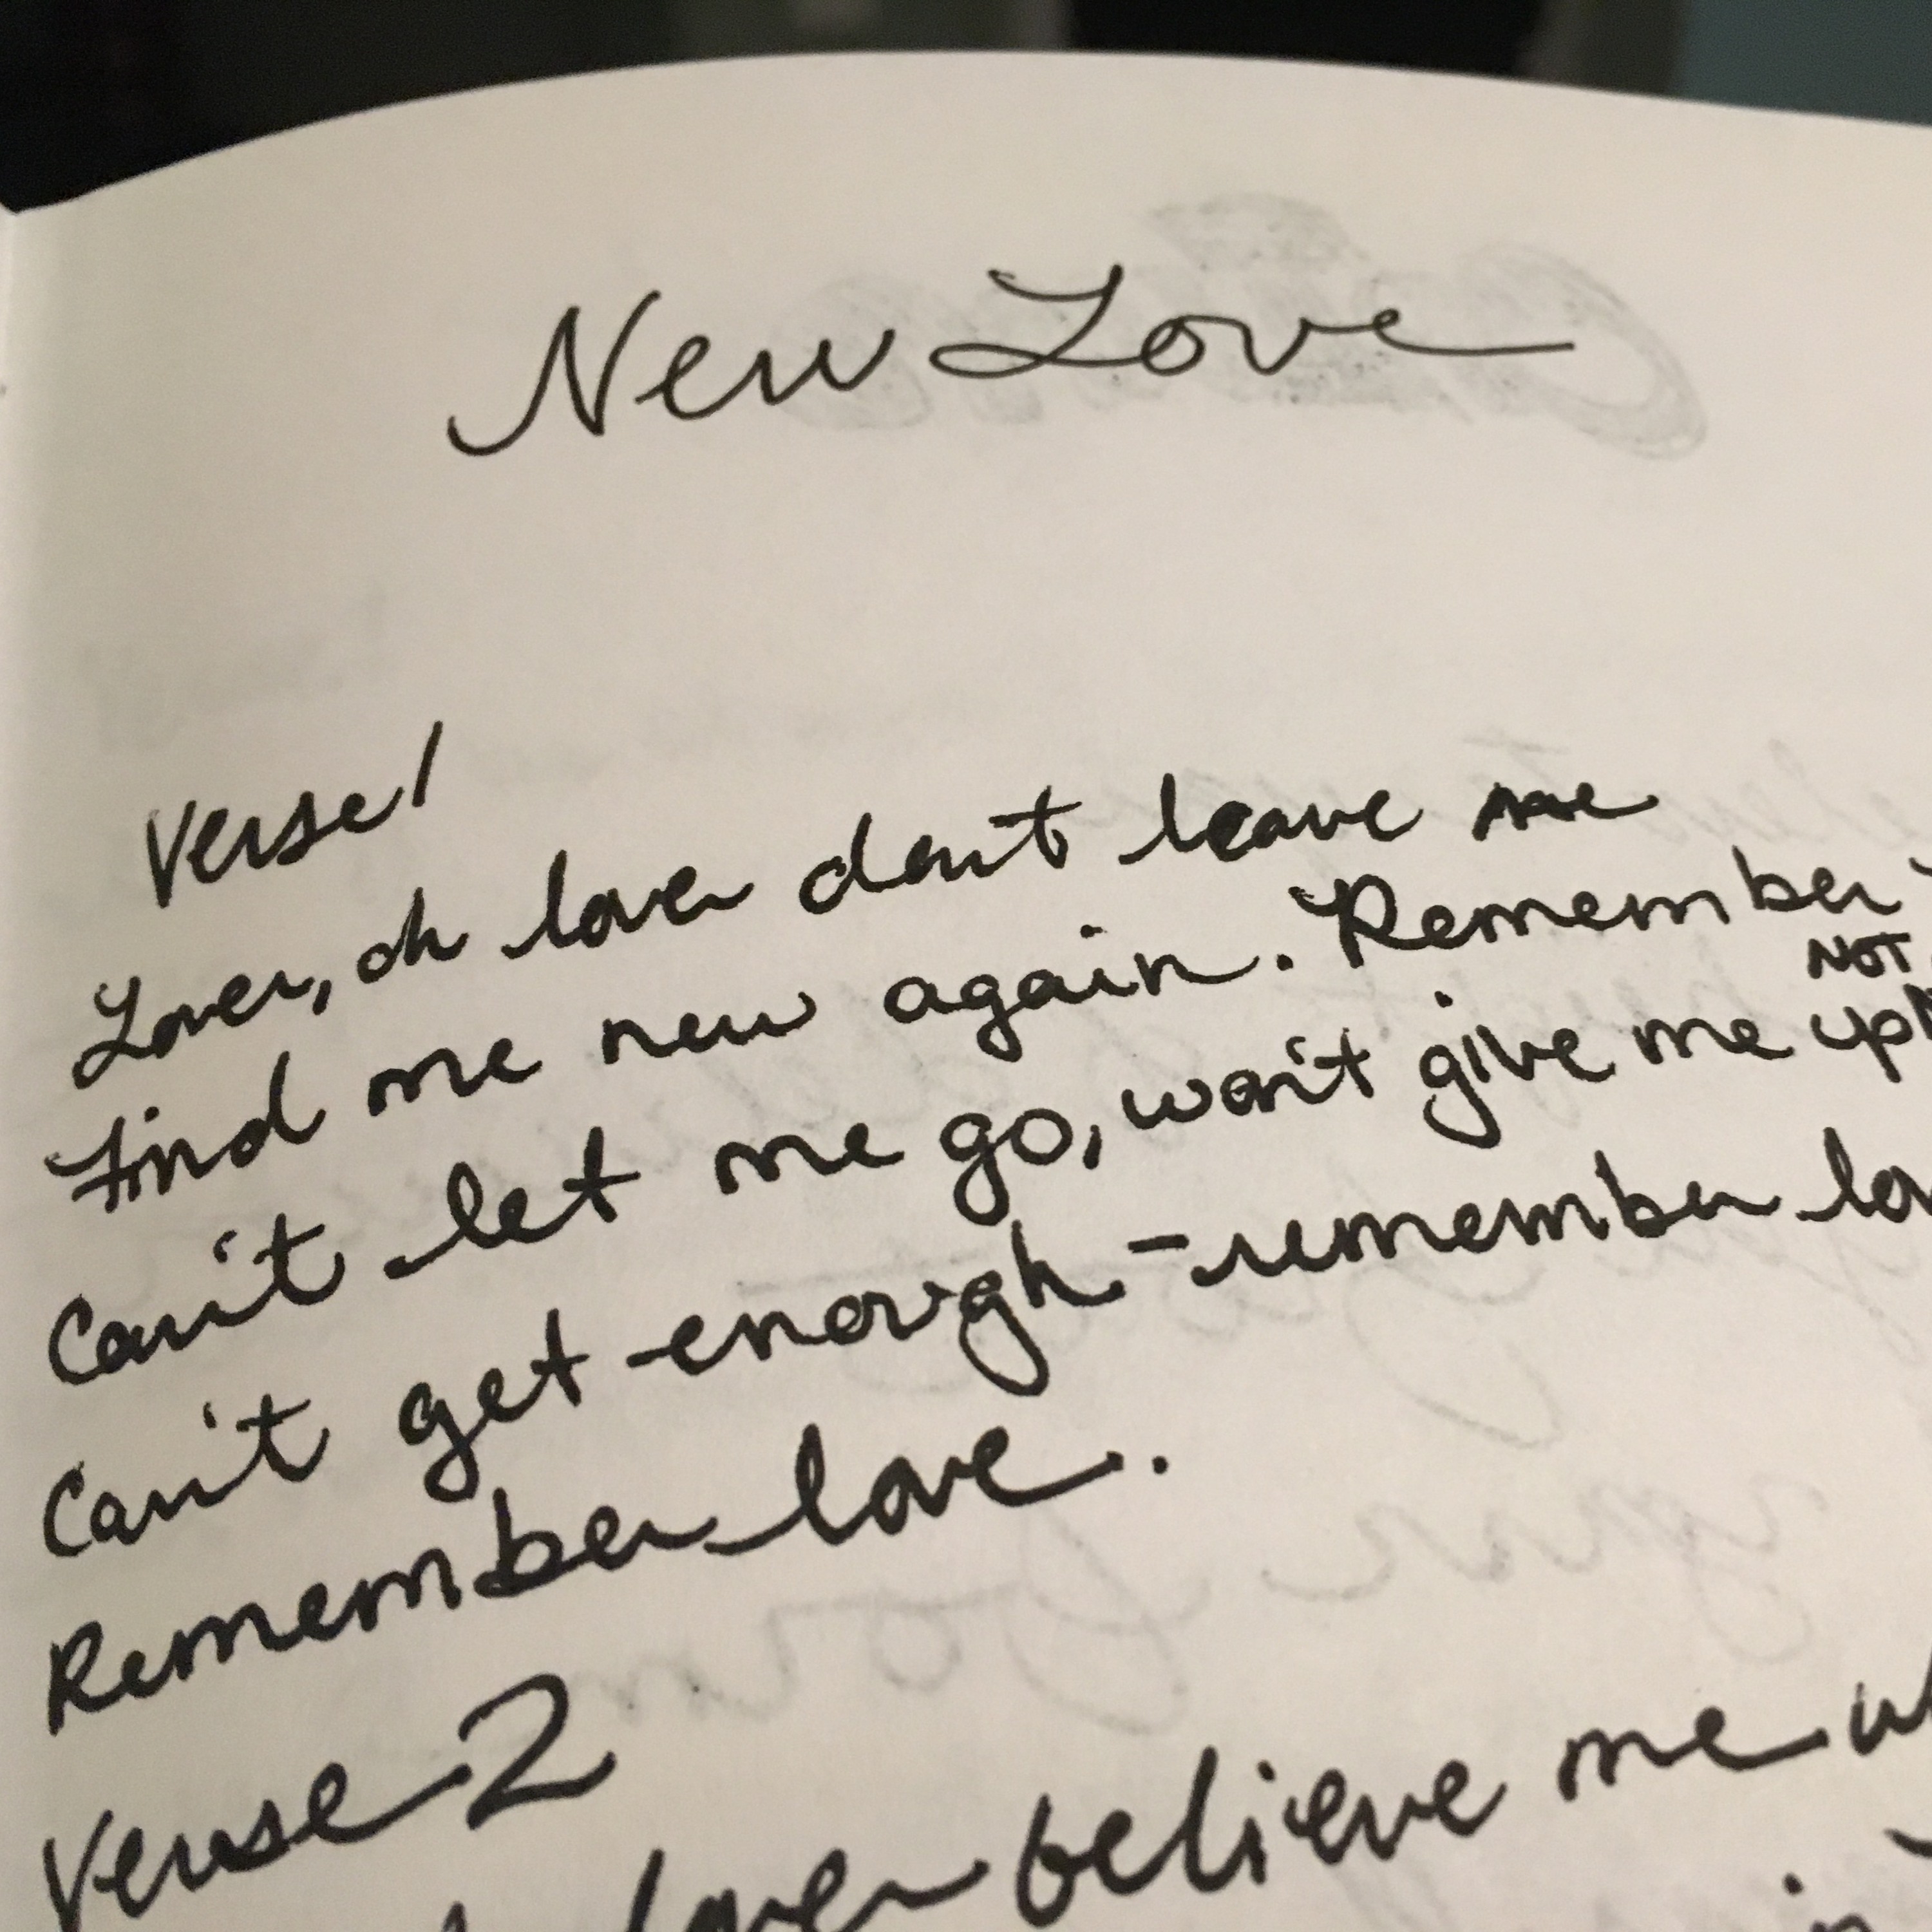 New Love
Verse 1
Lover, oh lover don't leave me
Find me new again. Remember
NOT
Can't let me go, won't give me up
Can't get enough - remember
Remember love.
Verse 2
lover believe me